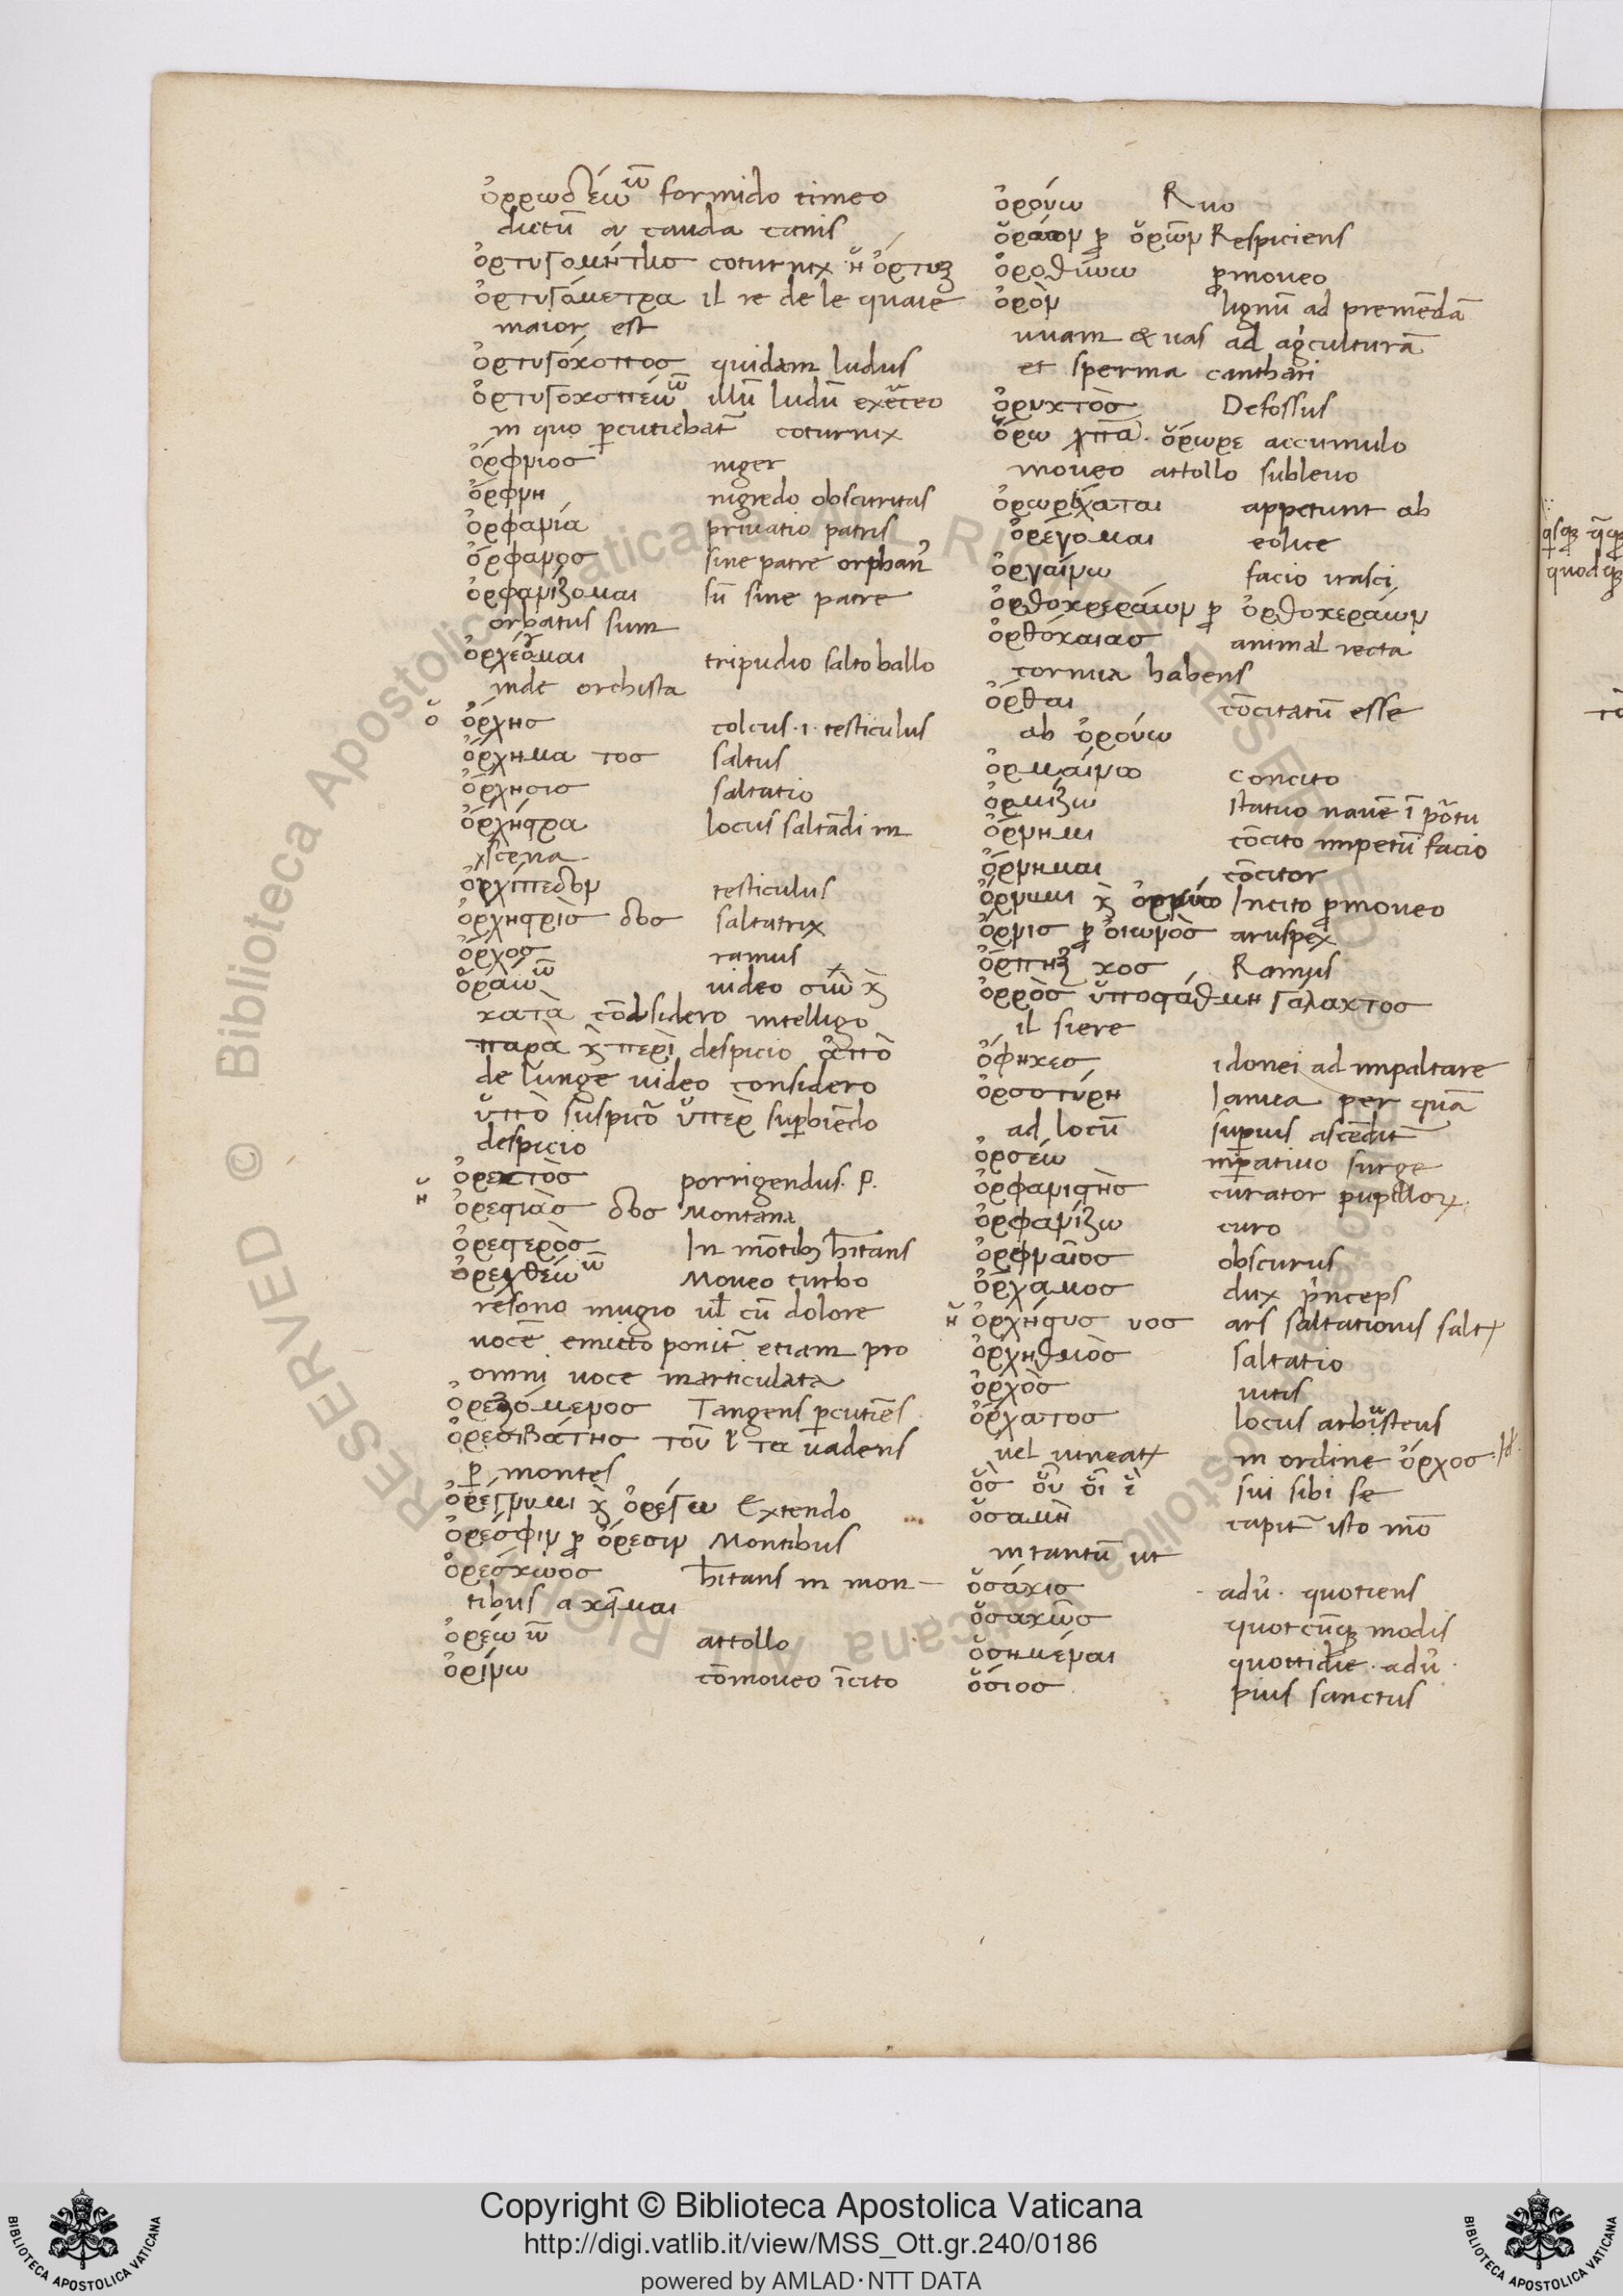 ὀρρωδέω ῶ formido timeo
dictū a cauda canis
ὀρτυγομήτηρ coturnix ἢ ὄρτυξ
ὀρτυγόμετρα il re de le quaie
maior est
ὀρτυγόκοπος quidam ludus
ὀρτυγοκοπέω ῶ illū ludū exerceo
in quo percutiebat̄ coturnix
ὄρφνιος niger
ὄρφνη nigredo obscuritas
ὀρφανία privatio patris
ὄρφανος sine patre orphan9
ὀρφανίζομαι sū sine patre
orbatus sum
ὀρχέομαι tripudio salto ballo
inde orchista
ὁ ὄρχης colcus .i. testiculus
ὄρχημα τος saltus
ὄρχησις saltatio
ὀρχήστρα locus saltādi in
scena
ὀρχίπεδον testiculus
ὀρχηστρὶς δος saltatrix
ὄρχος ramus
ὁράω ῶ video σὺν κ̀
κατὰ cōsidero intelligo
παρὰ κ̀ περὶ despicio ἀπὸ
de lunge video considero
ὑπὸ suspicor̄ ὑπὲρ superbiēdo
despicio
ὀρεκτὸς porrigendus. p.
ἡ ὀρεστιὰς δος Montana
ὀρεστερὸς In mōtibꝫ hītans
ὀρεχθέω ῶ Moveo turbo
resono mugio vl̄ cū dolore
vocē emitto ponit̄ etiam pro
omni voce inarticulata
ὀρεξόμενος Tangens percutiēs
ὀρεσιβάτης του ὁ τα vadens
per montes
ὀρέγνυμι κ̀ ὀρέγω Extendo
ὀρέσφιν pro ὄρεσιν Montibus
ὀρέσκωος hītans in mon-
tibus a
ὀρέω ῶ attollo
ὀρίνω cōmoveo īcito
ὀρούω Ruo
ὁράων pro ὁρῶν Respiciens
ὀροθύνω promoveo
ὀρὸν lignū ad premēdā
uvam & vas ad agiculturā
et sperma canthari
ὀρυκτὸς Defossus
ὄρω ὄρωρε accumulo
moveo attollo sublevo
ὀρωρέχαται appetunt ab
ὀρέγομαι eolice
ὀργαίνω facio irasci
ὀρθοκρεράιων pro ὀρθοκεράιων
ὀρθόκαιας animal recta
cornua habens
ὄρθαι cōcitatū esse
ab ὀρούω
ὁρμαίνω concito
ὁρμίζω statuo navē ī portu
ὄρνημι cōcito impetū facio
ὄρνημαι cōcitor
ὄρνυμι κ̀ Incito promoveo
ὄρνις pro ὀιωνὸς aruspex
ὄρπηξ κος Ramus
ὀρρὸς ὑποστάθμη γάλακτος
il siere
ὄφηκες idonei ad
ὀρσοτύρη Ianua per quā
ad locū superius ascēdit̄
ὀρσέω imperativo surge
ὀρφανιστὴς curator pupilloꝝ
ὀρφανίζω curo
ὀρφναῖος obscurus
ὄρχαμος dux princeps
ἡ ὀρχήστυς υος ars saltationis
ὀρχηθμὸς saltatio
ὀρχὸς vitis
ὄρχατος locus arbusteus
vel vineaꝝ in ordine ὄρχος
ὃς οὗ οἷ ἓ sui sibi se
ὁσαμὴ capit̄ isto mō
in tantū ut
ὁσάκις adv. quotiens
ὁσαχῶς quotcūqꝫ modis
ὁσημέραι quottidie. adv.
ὅσιος pius sanctus
Copyright © Biblioteca Apostolica Vaticana
http://digi.vatlib.it/view/MSS_Ott.gr.240/0186
powered by AMLAD·NTT DATA